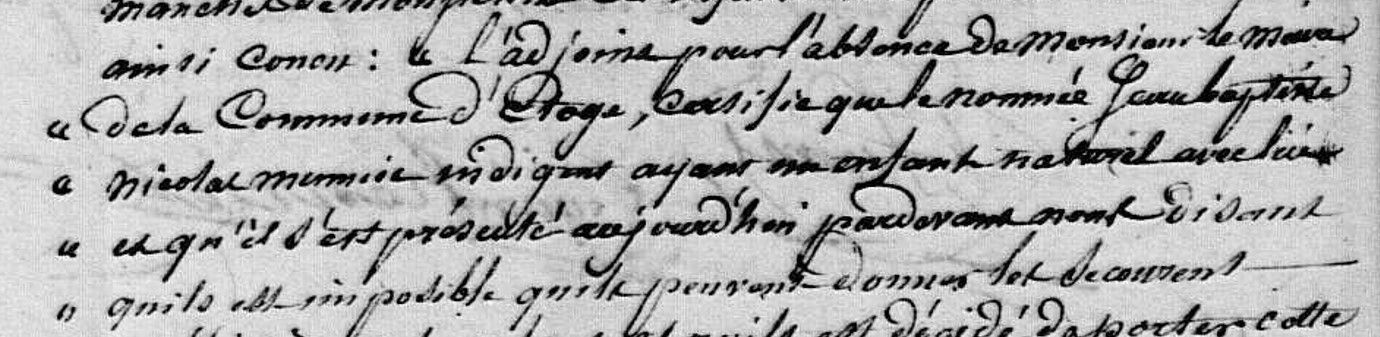 ainsi concu : « l'adjoint pour l'absence de Monsieur le Maire
« de la Commune d'Etoge, Certifie que le nommée Jean baptiste
« nicolas indigent ayant un enfant naturel avec lui
« et qu'il s'est présenté aujourd'hui pardevant nous disant
« quils est imposible quils peuvent donner les secourent
est décidé de porter cotte